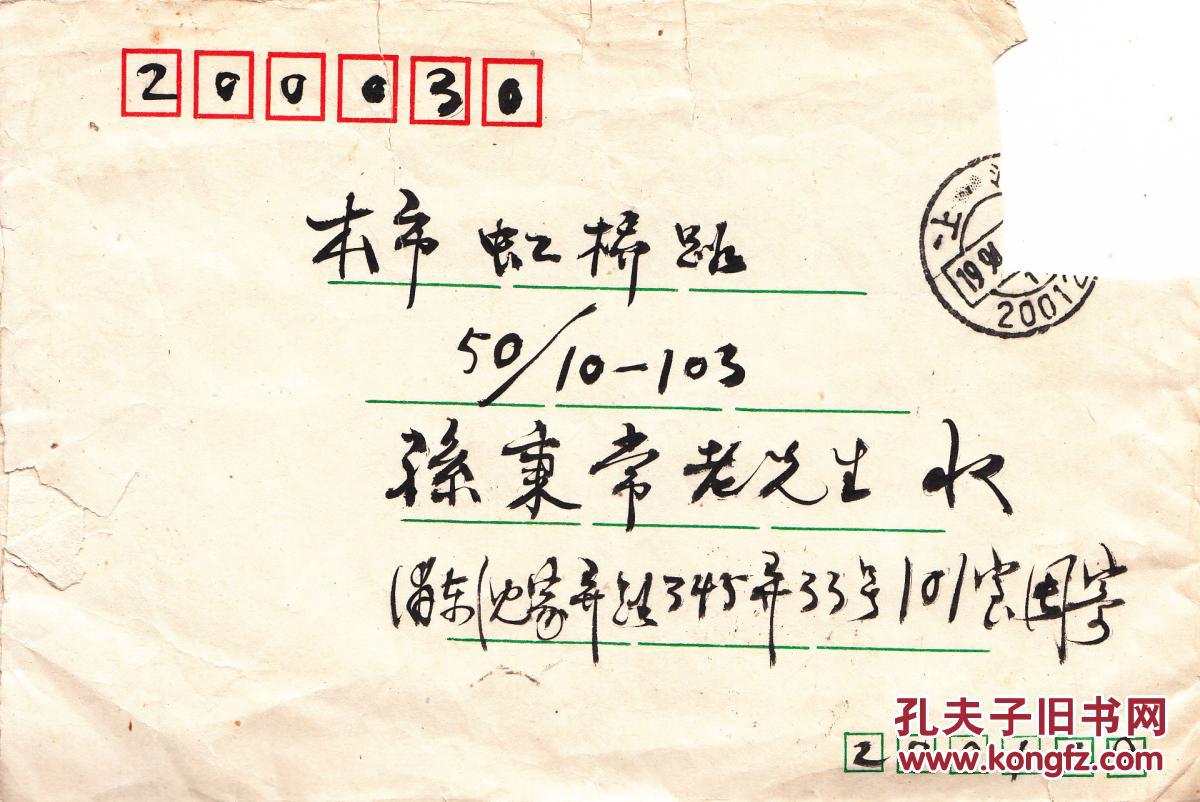 200030
本市 虹桥路
50/10-103
孫秉常老先生 收
浦东沈家弄路345弄33号101室周寄
1994
20012
孔夫子旧书网
www.kongfz.com